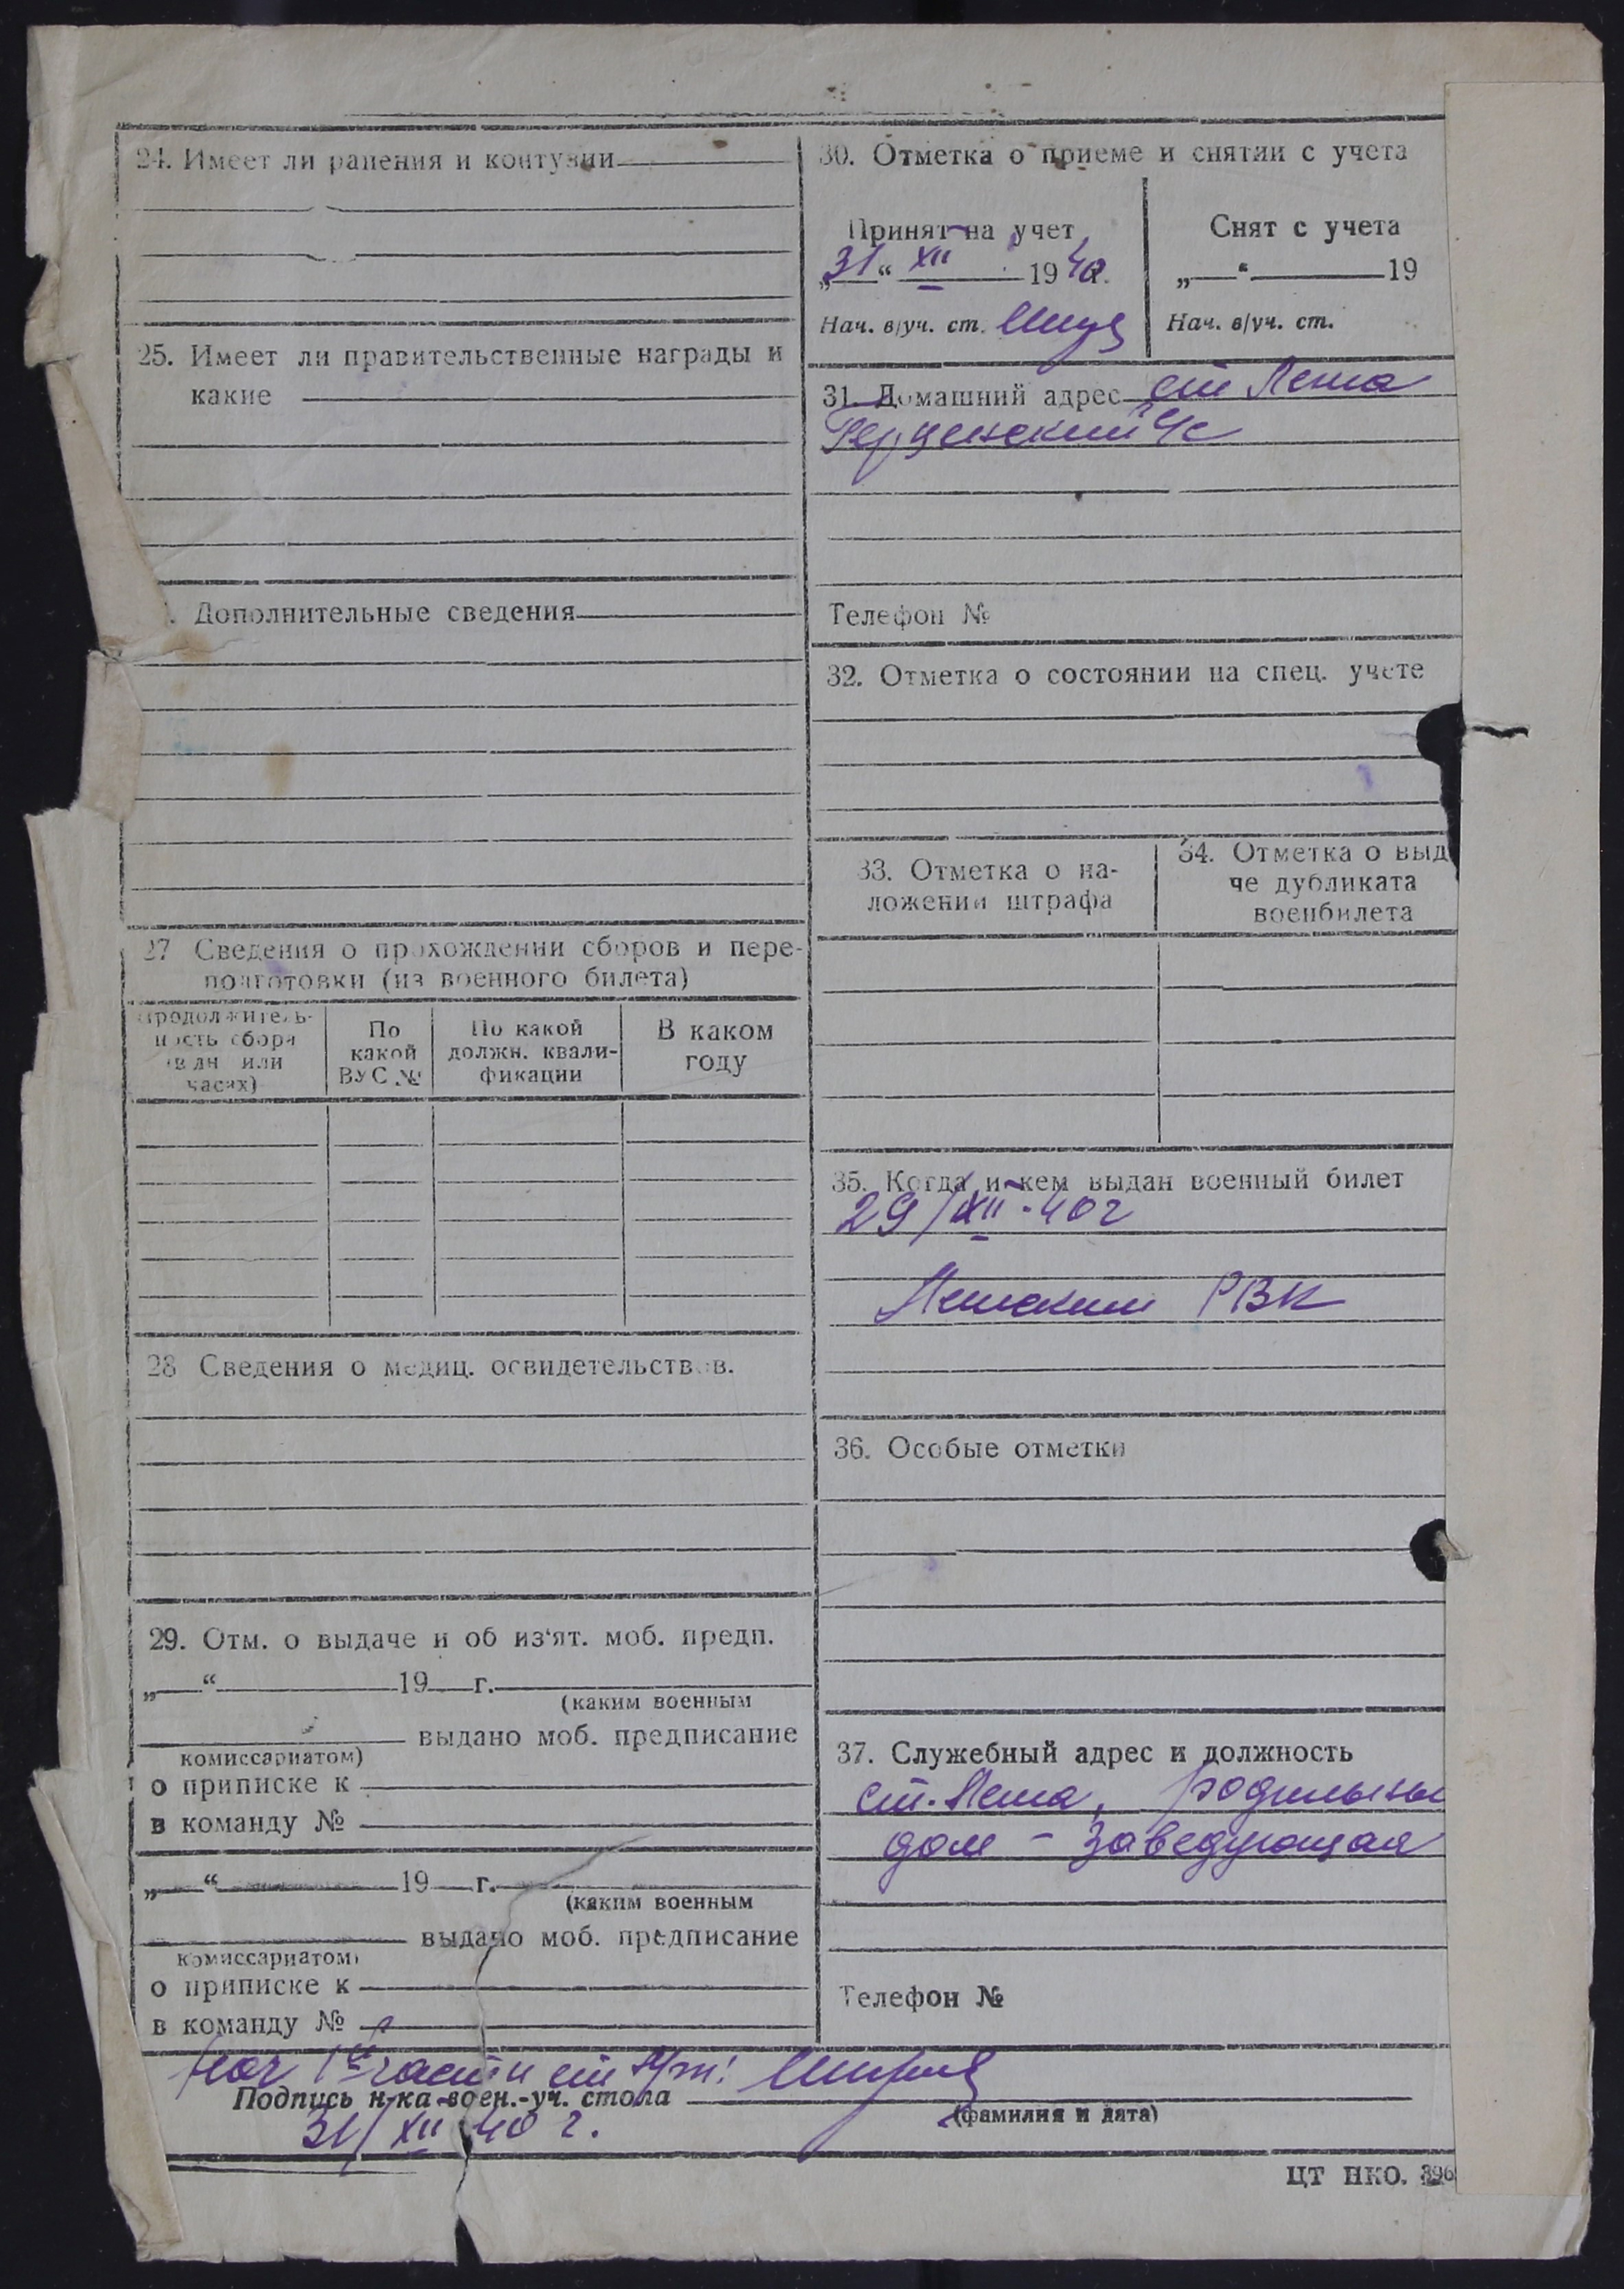 24. Имеет ли ранения и контузии
25. Имеет ли правительственные награды и
какие
Дополнительные сведения
27 Сведения о прохождении сборов и пере-
подготовки (из военного билета)
Продолжитель-
ность сбора
(в дн или
часах)
По
какой
ВУС №
По какой
должн. квали-
фикации
В каком
году
28 Сведения о медиц. освидетельствов.
29. Отм. о выдаче и об из'ят. моб. предп.
„ “ 19 г.
(каким военным
выдано моб. предписание
комиссариатом)
о приписке к
в команду №
„ “ 19 г.
(каким военным
выдано моб. предписание
комиссариатом)
о приписке к
в команду №
30. Отметка о приеме и снятии с учета
Принят на учет
„31“ XII 1940г.
Нач. в/уч. ст.
Снят с учета
„ “ 19
Нач. в/уч. ст.
31. Домашний адрес ст Леша
Герценский
Телефон №
32. Отметка о состоянии на спец. учете
33. Отметка о на-
ложении штрафа
34. Отметка о выд
че дубликата
военбилета
35. Когда и кем выдан военный билет
29/XII-40г
РВК
36. Особые отметки
37. Служебный адрес и должность
ст. Леша, родильны
дом - заведующая
Телефон №
Нач 1й части
Подпись н-ка воен.-уч. стола
(фамилия и дата)
31/XII 40 г.
ЦТ НКО. 396